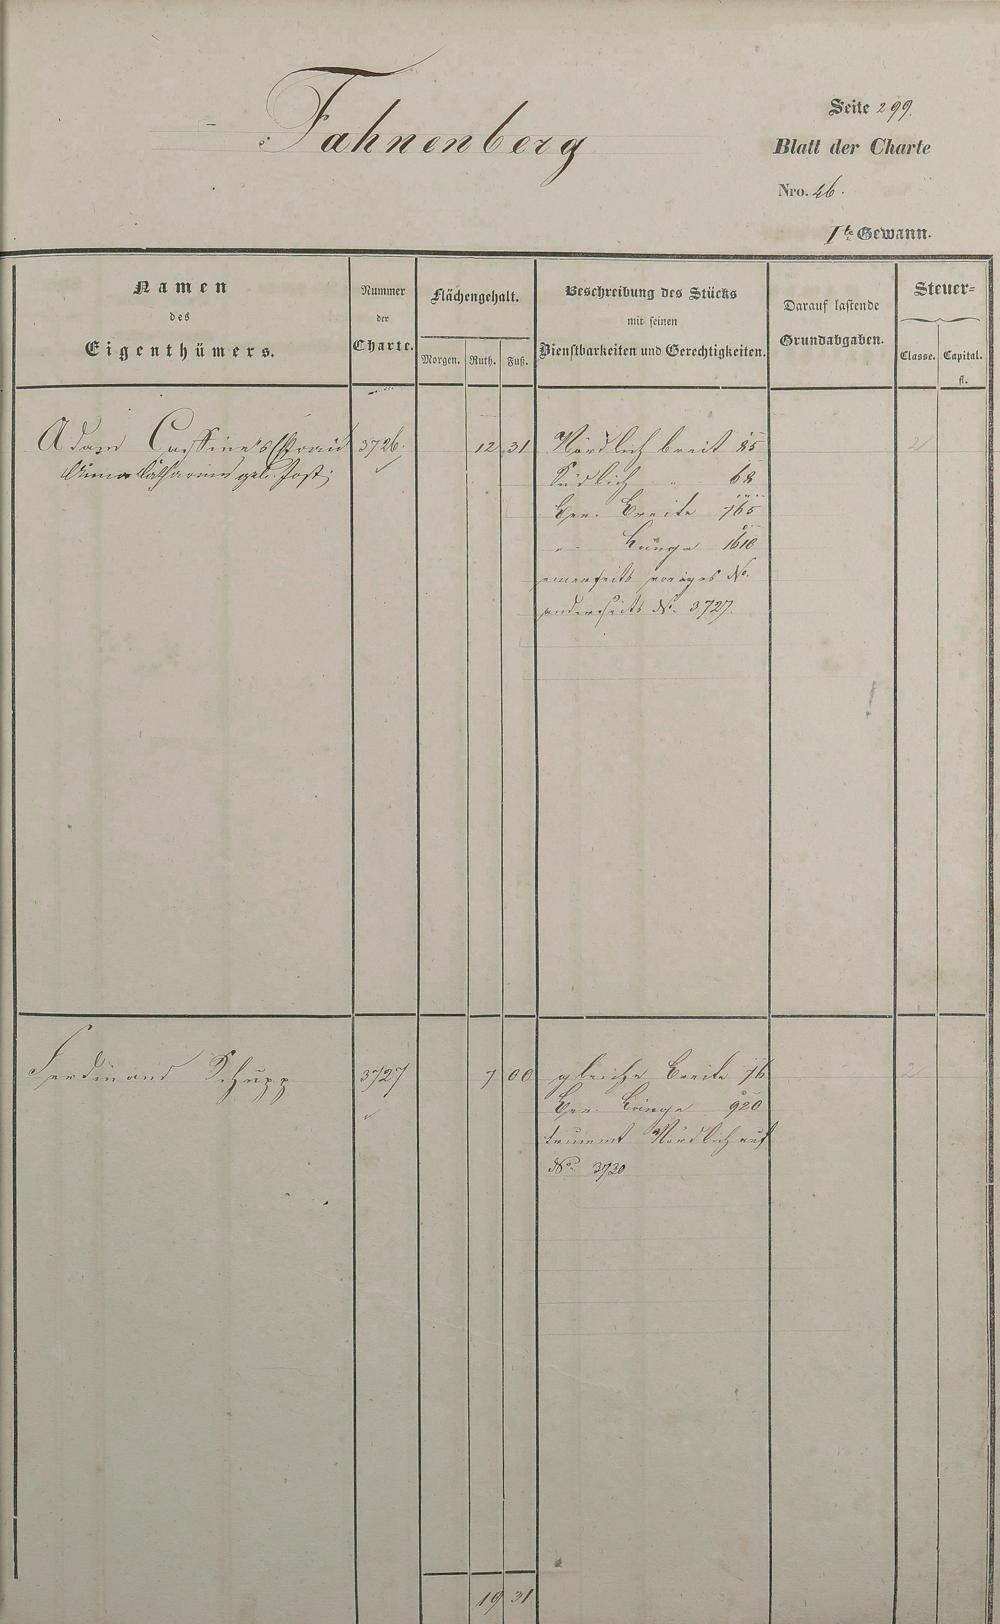 Fahnenberg
Seite 299.
Blatt der Charte
Nro. 46.
1te Gewann.
Namen
des
Eigenthümers.
Nummer
der
Charte.
Flächengehalt.
Morgen. Ruth. Fuß.
Beschreibung des Stücks
mit seinen
Dienstbarkeiten und Gerechtigkeiten.
Darauf lastende
Grundabgaben.
Steuer=
Classe. Capital.
fl.
Adam Frau 3726. 12 31 Nördlich breit 85 2
Anna Catharina geb. Jost; Südlich " 68
Gen. Breite 765
" Länge 1610
einerseits voriges No.
anderseits No. 3727.
Ferdinand Schupp 3727 7 00 gleiche Breite 76 2
Gen. Länge 920
Nördlich auf
No. 3730
19 31